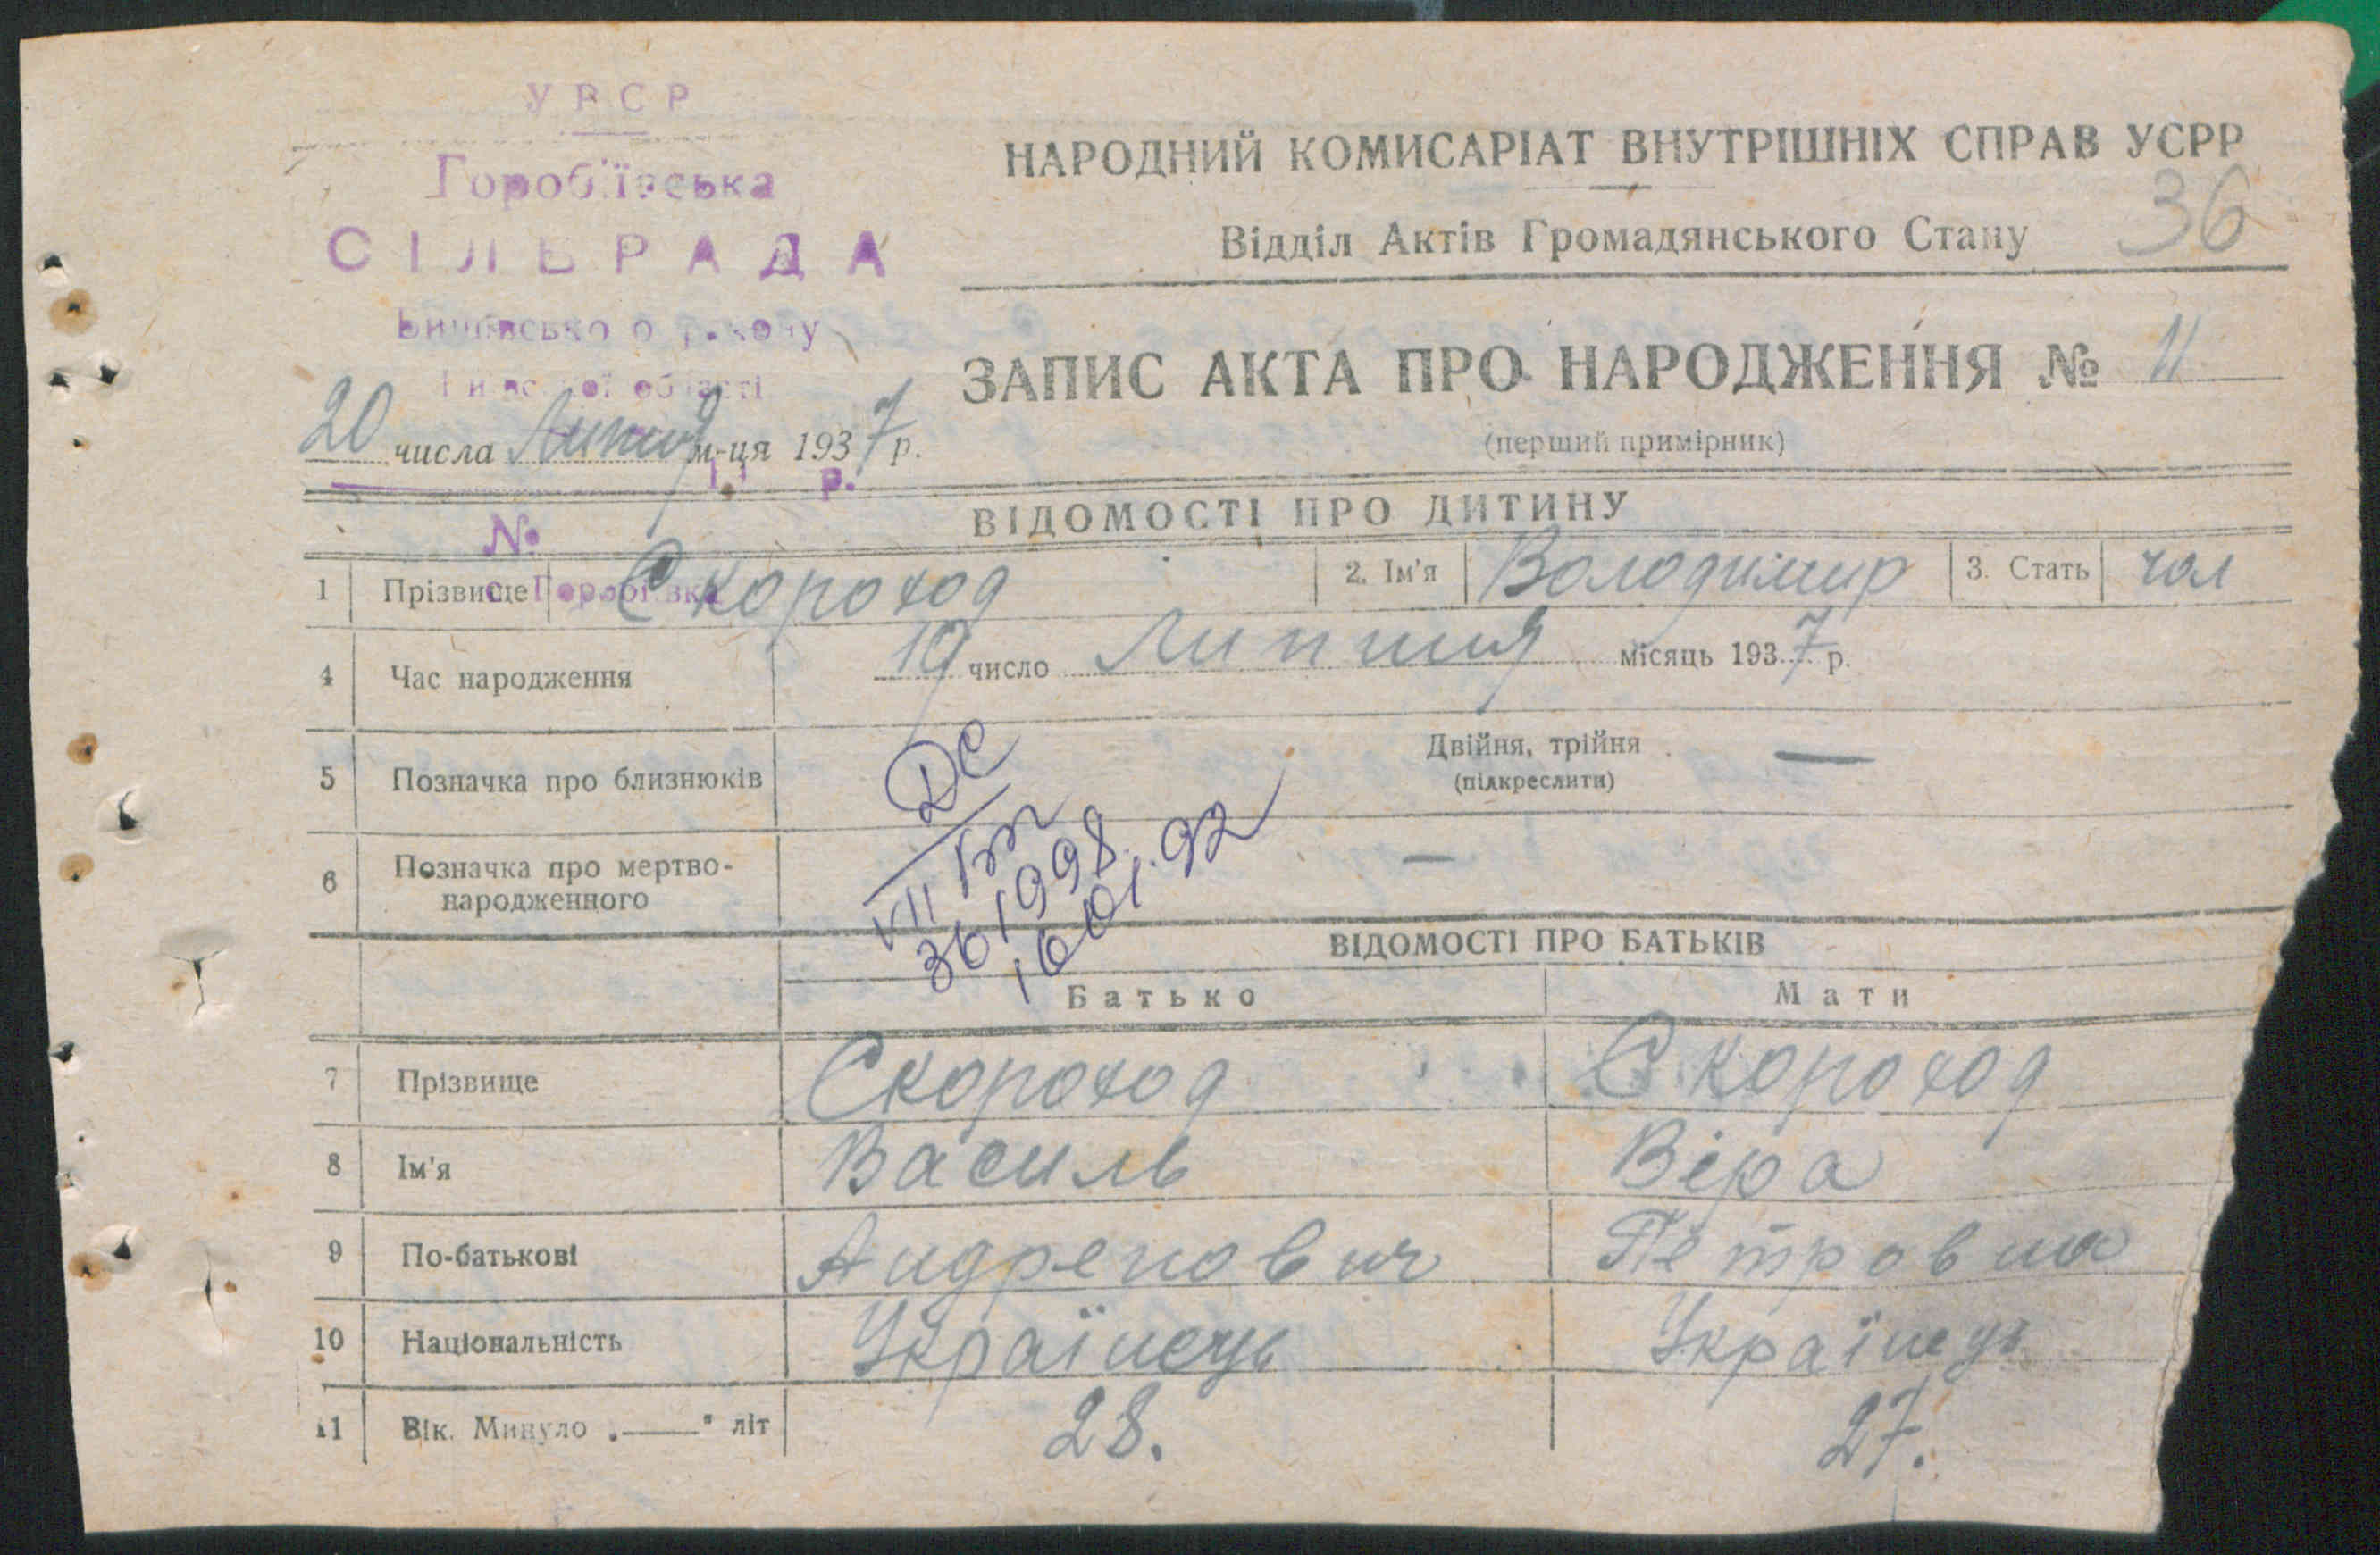 УРСР
Гороб'ївська
СІЛЬРАДА
НАРОДНИЙ КОМИСАРІАТ ВНУТРІШНІХ СПРАВ УСРР
36
Відділ Актів Громадянського Стану
ЗАПИС АКТА ПРО НАРОДЖЕННЯ № 11
(перший примірник)
20 числа Липня м-ця 1937 р.
р.
№
ВІДОМОСТІ ПРО ДИТИНУ
с. Гороб'ївка
1 Прізвище Скороход 2. Ім'я Володимир 3. Стать чол
4 Час народження 19 число Липня місяць 1937 р.
5 Позначка про близнюків Двійня, трійня —
(підкреслити)
6 Позначка про мертво-
народженного —
ДС
VII БМ
361998
16 01. 92
ВІДОМОСТІ ПРО БАТЬКІВ
Батько Мати
7 Прізвище Скороход Скороход
8 Ім'я Василь Віра
9 По-батькові Андрепович Петровна
10 Національність Українець Українець
11 Вік. Минуло „——" літ 28. 27.